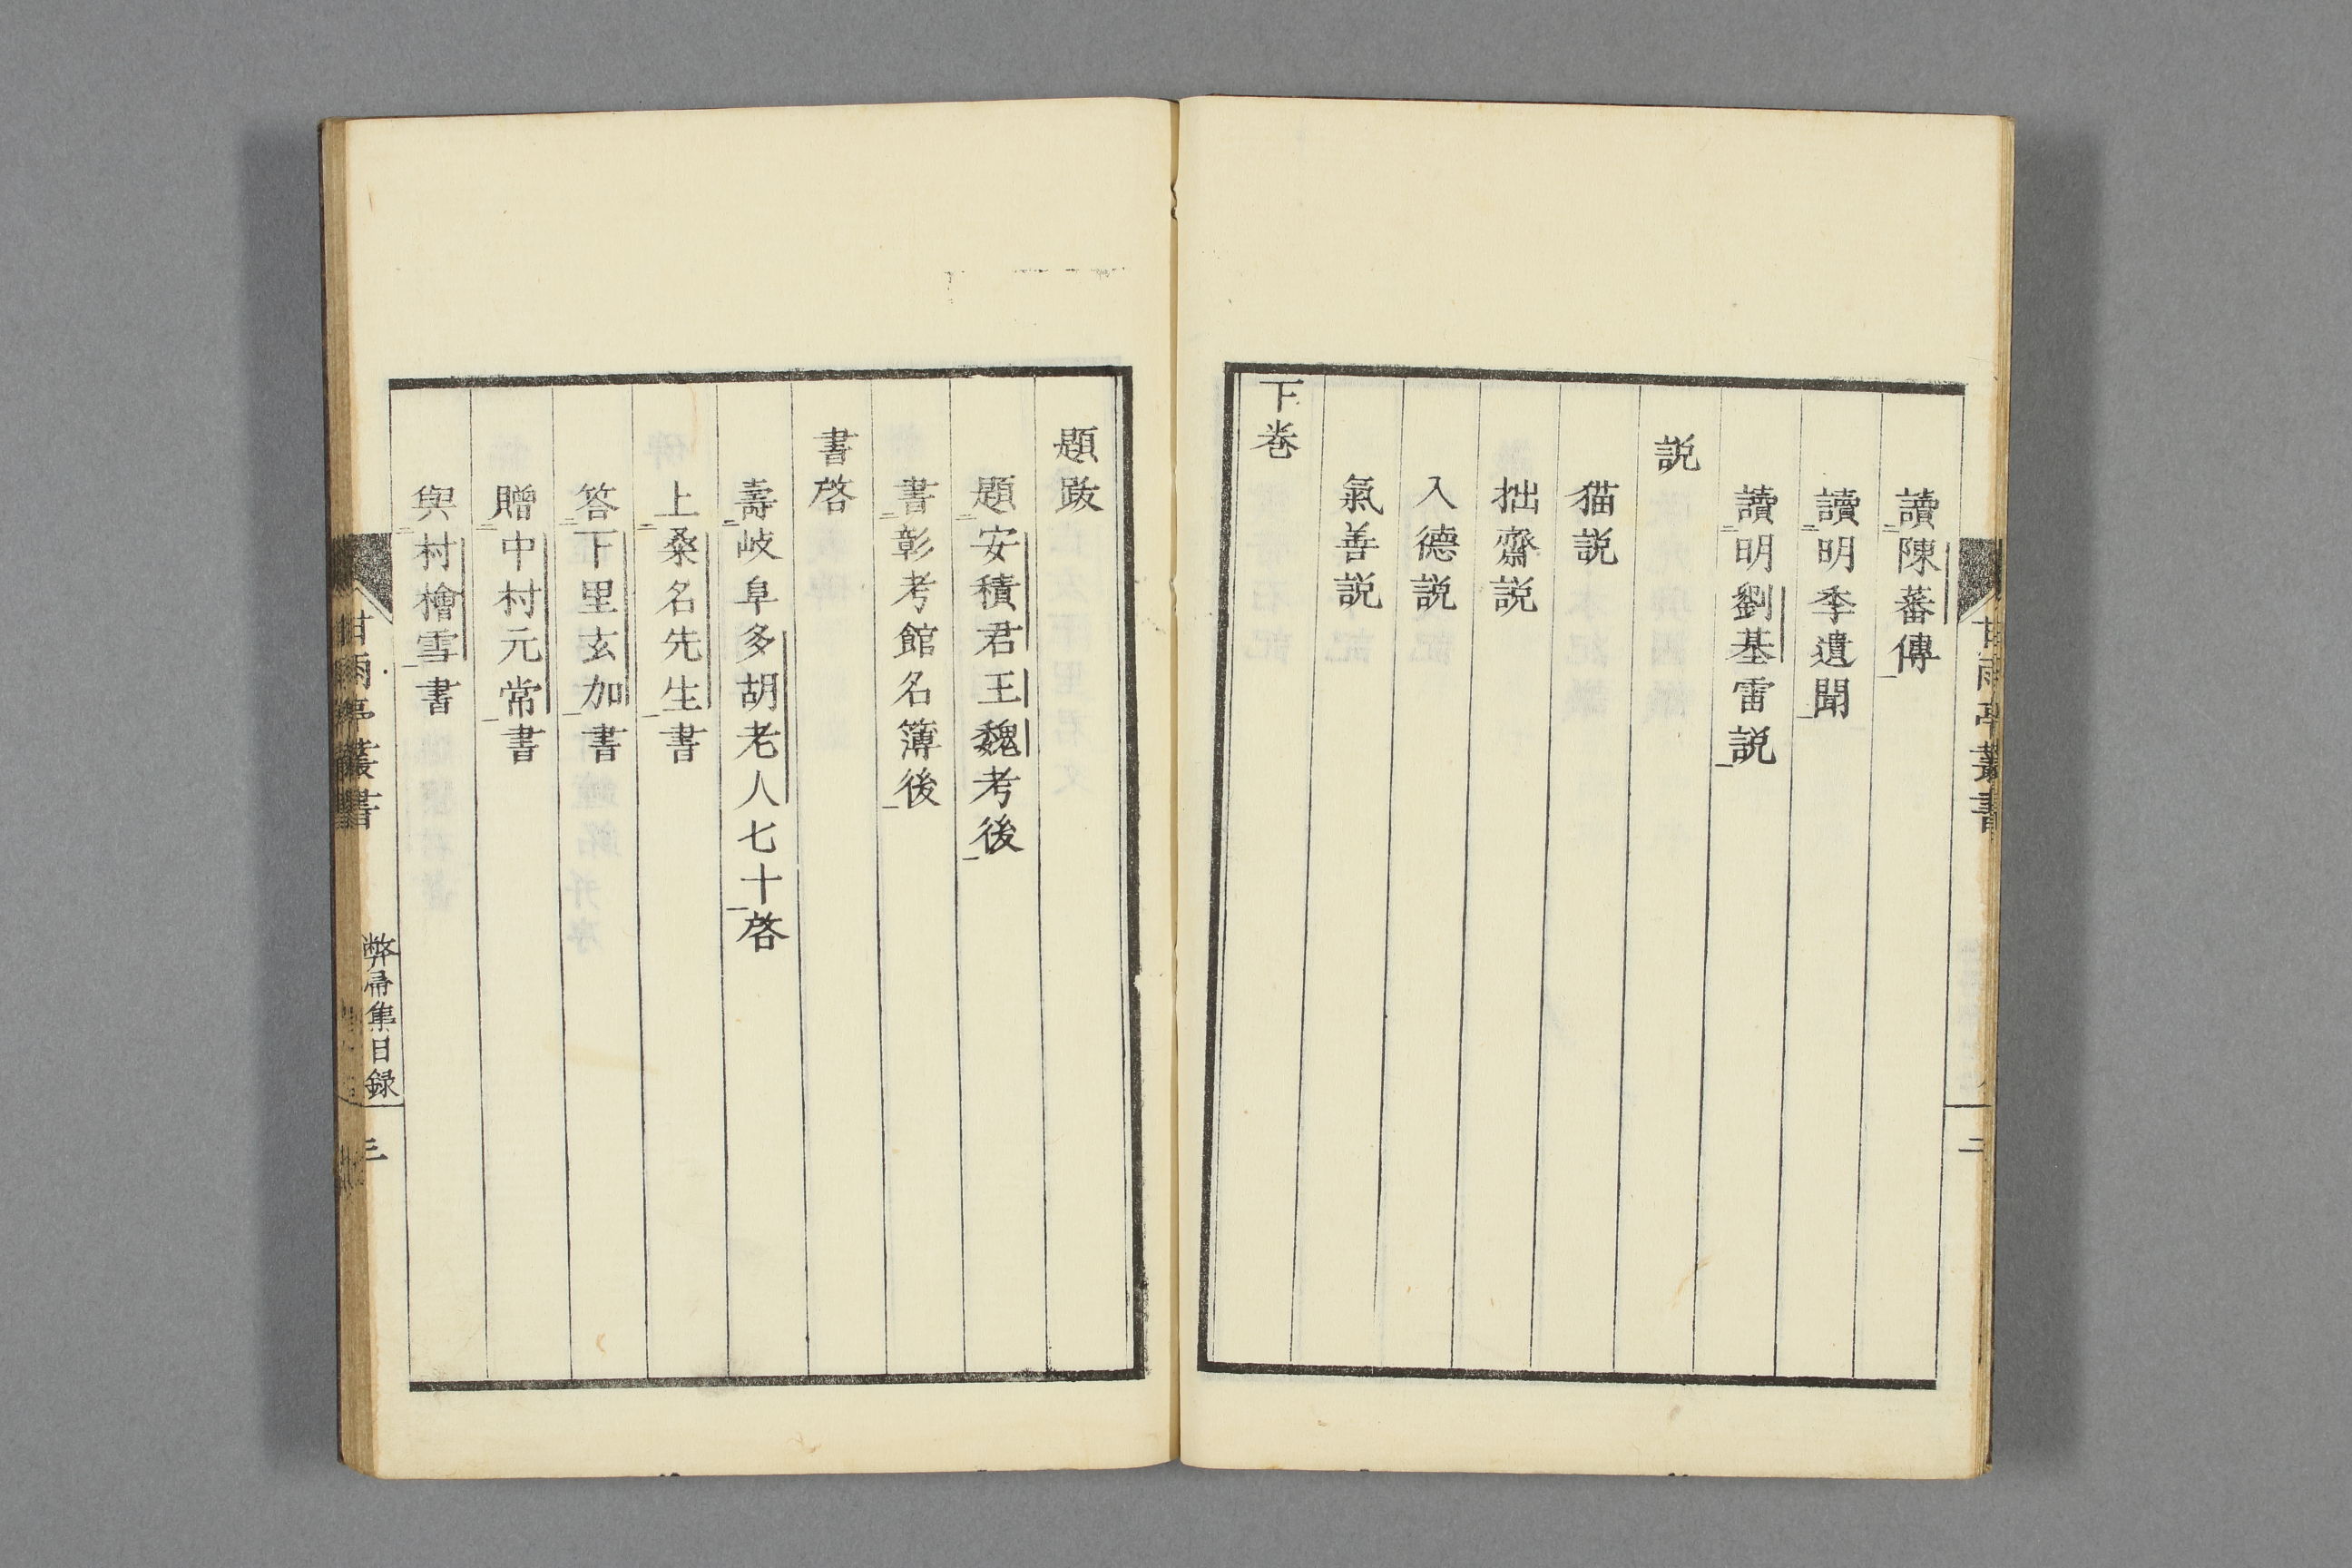 讀陳蕃傳
讀明季遺聞
讀明劉基雷説
説
猫説
拙齋説
入德説
氣善説
下巻
甘雨亭叢書
二
題跋
題安積君王魏考後
書彰考館名簿後
書啓
壽岐阜多胡老人七十啓
上桑名先生書
答下里玄加書
贈中村元常書
與村檜雪書
甘雨亭叢書
弊帚集目録
三